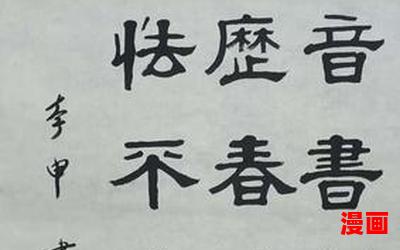 音書
歷春
怯不
李申
漫画